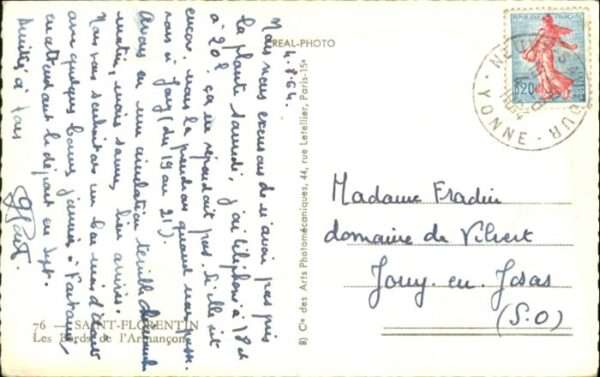 4.8.64.
Nous nous excusons de n'avoir pas pris
la plante samedi, j'ai téléphoné à 18 et
à 20h. ça ne répondait pas. Si elle vit
encore, nous la prendrons quand nous pass.
rons à Jouy (du 19 au 21).
Avons eu une circulation terrible
matin, mais sommes bien arrivés.
Nous vous souhaitons un bon mois d'Août
avec quelques bonnes journées à
en attendant le départ en Sept.
Amitiés à tous
REAL-PHOTO
B) Cie des Arts Photomécaniques, 44, rue Letellier, Paris-15e
REPUBLIQUE FRANÇAISE
0,20
YONNE
Madame Fradin
domaine de Vilvert
Jouy-en-Josas
(S.O)
76 — SAINT-FLORENTIN
Les Bords de l'Armançon